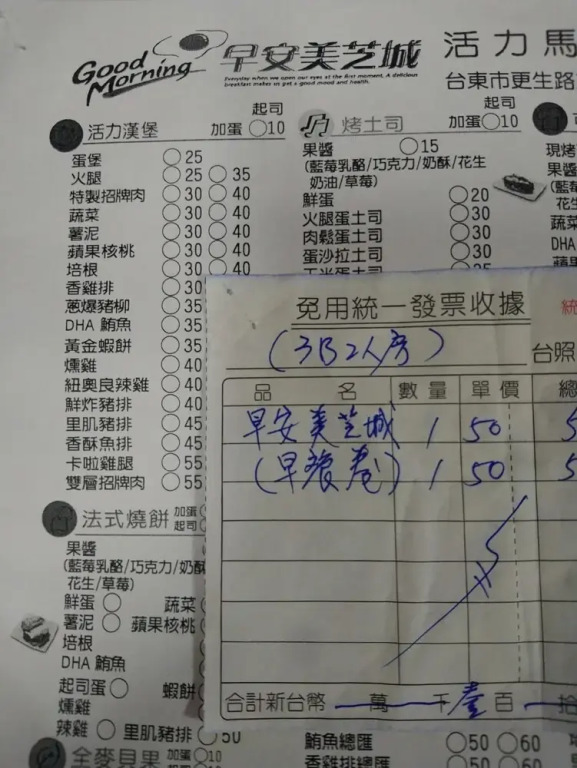 Good Morning 早安美芝城 活力馬
Everyday when we open our eyes at the first moment, A delicious
breakfast makes us get a good mood and health.
台東市更生路
活力漢堡 加蛋○10 起司
蛋堡 ○25
火腿 ○25 ○35
特製招牌肉 ○30 ○40
蔬菜 ○30 ○40
薯泥 ○30 ○40
蘋果核桃 ○30 ○40
培根 ○30 ○40
香雞排 ○30
蔥爆豬柳 ○35
DHA 鮪魚 ○35
黃金蝦餅 ○35
燻雞 ○40
紐奧良辣雞 ○40
鮮炸豬排 ○40
里肌豬排 ○45
香酥魚排 ○45
卡啦雞腿 ○55
雙層招牌肉 ○55
烤土司 加蛋○10 起司
果醬 ○15
(藍莓乳酪/巧克力/奶酥/花生
奶油/草莓)
鮮蛋 ○20
火腿蛋土司 ○30
肉鬆蛋土司 ○30
蛋沙拉土司 ○30
現烤
果醬
(藍莓
花生
蔬菜
DHA
蘋果
法式燒餅 加蛋
起司
果醬
(藍莓乳酪/巧克力/奶酥
花生/草莓)
鮮蛋 ○ 蔬菜
薯泥 ○ 蘋果核桃
培根
DHA 鮪魚
起司蛋 ○ 蝦餅
燻雞
辣雞 ○ 里肌豬排 ○50
全麥貝果 加蛋○10
起司
鮪魚總匯 ○50 ○60
香雞排總匯 ○50 ○60
免用統一發票收據 統
(3B2人房)
台照
品名 數量 單價 總
早安美芝城 1 50 5
(早餐卷) 1 50 5
合計新台幣 萬 千 壹 百 拾